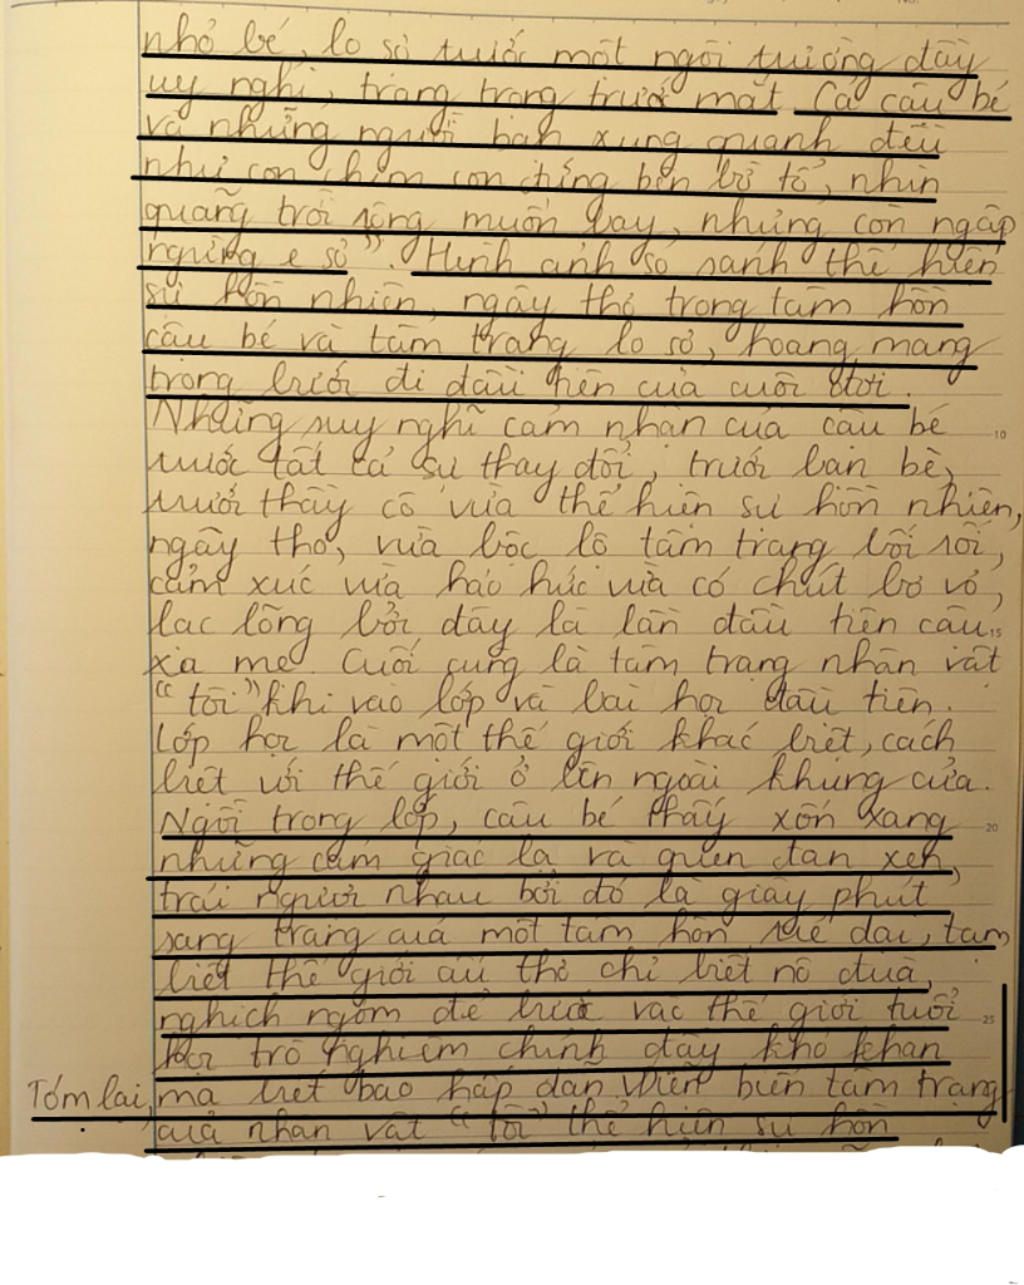 nhỏ bé, lo sợ trước một ngôi trường đầy
uy nghi, trang trọng trước mắt. Cả cậu bé
và những người bạn xung quanh đều
như con chim con đứng bên bờ tổ, nhìn
quãng trời rộng muốn bay, nhưng còn ngập
ngừng e sợ". Hình ảnh so sánh thể hiện
sự hồn nhiên, ngây thơ trong tâm hồn
cậu bé và tâm trạng lo sợ, hoang mang
trong bước đi đầu tiên của cuộc đời.
Những suy nghĩ cảm nhận của cậu bé
trước tất cả sự thay đổi, trước bạn bè,
trước thầy cô vừa thể hiện sự hồn nhiên,
ngây thơ, vừa bộc lộ tâm trạng bối rối,
cảm xúc vừa háo hức vừa có chút bơ vơ,
lạc lõng bởi đây là lần đầu tiên cậu
xa mẹ. Cuối cùng là tâm trạng nhân vật
"tôi" khi vào lớp và bài học đầu tiên.
Lớp học là một thế giới khác biệt, cách
biệt với thế giới ở bên ngoài khung cửa.
Ngồi trong lớp, cậu bé thấy xốn xang
những cảm giác lạ và quen đan xen,
trái ngược nhau bởi đó là giây phút
sang trang của một tâm hồn trẻ dại, tạm
biệt thế giới ấu thơ chỉ biết nô đùa,
nghịch ngợm để bước vào thế giới tuổi
học trò nghiêm chỉnh đầy khó khăn
mà biết bao hấp dẫn. Diễn biến tâm trạng
Tóm lại,
của nhân vật "tôi" thể hiện sự hồn